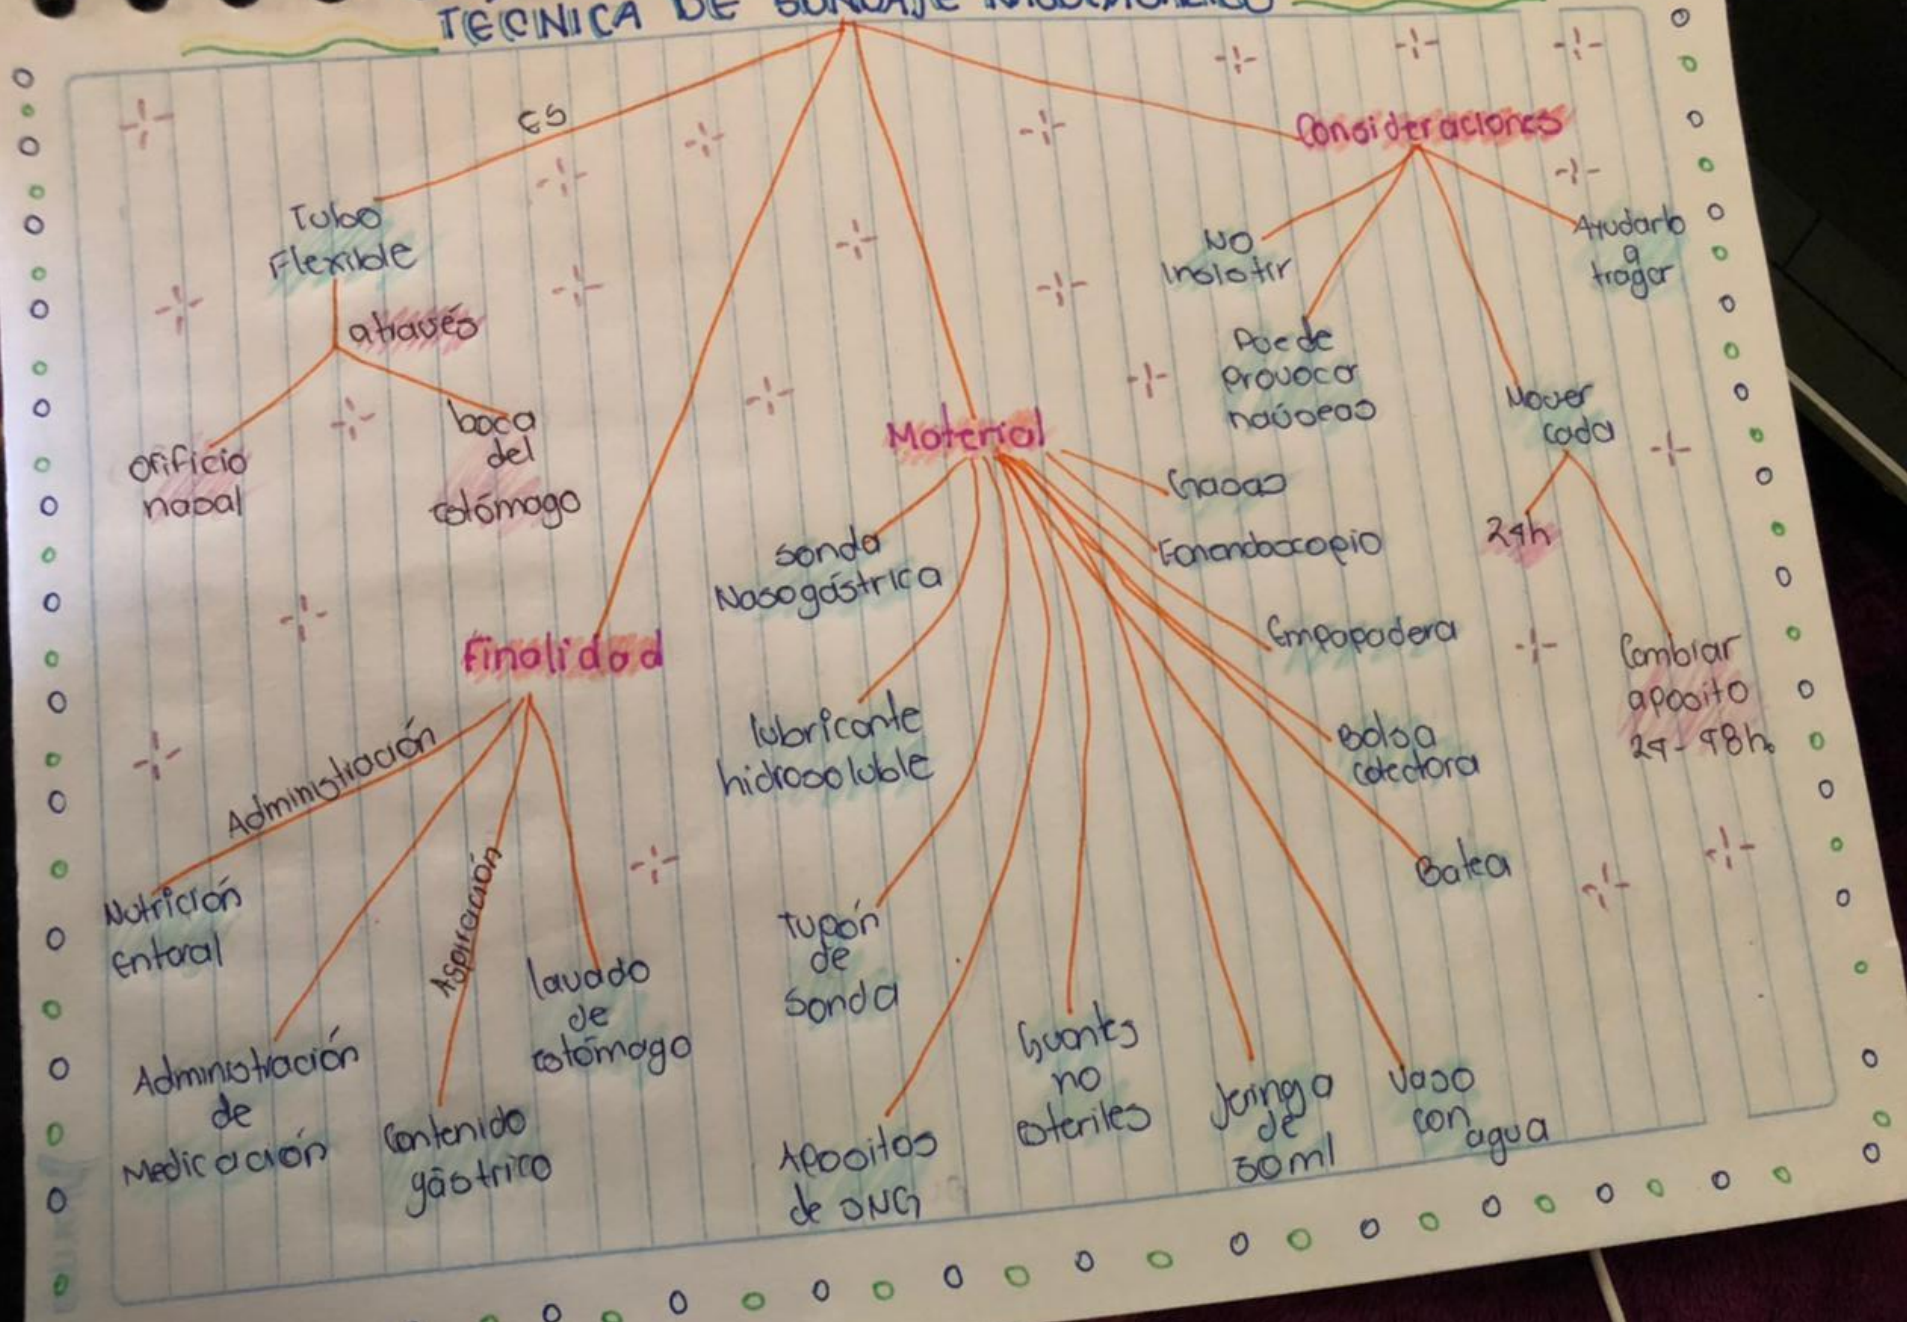 TECNICA DE SONDAJE NASOGÁSTRICO
ES
Tubo
Flexible
através
orificio
nasal
boca
del
estómago
Finalidad
Administración
Nutrición
Entaral
Administración
de
Medicación
Aspiración
Contenido
gástrico
lavado
de
estómago
Material
Sonda
Nasogástrica
lubricante
hidrosoluble
Tupón
de
Sonda
Apositos
de SNG
Guantes
no
esteriles
Jeringa
de
50ml
Vaso
con
agua
Batea
Bolsa
Colectora
Empapadera
Fonendoscopio
Gasas
Consideraciones
NO
Insistir
Puede
Provocar
naúseas
Mover
cada
24h
Cambiar
aposito
24-48h.
Ayudarlo
a
tragar